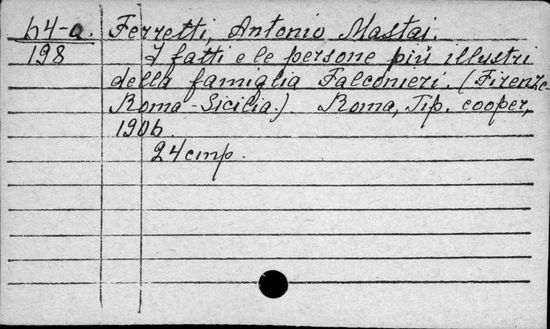 h4-a. Ferretti, Antonio Mastai.
198 I fatti e le persone più illustri
della famiglia Falconieri. (Firenze
Roma-Sicilia.) Roma, Tip. cooper,
1906.
24cmp.